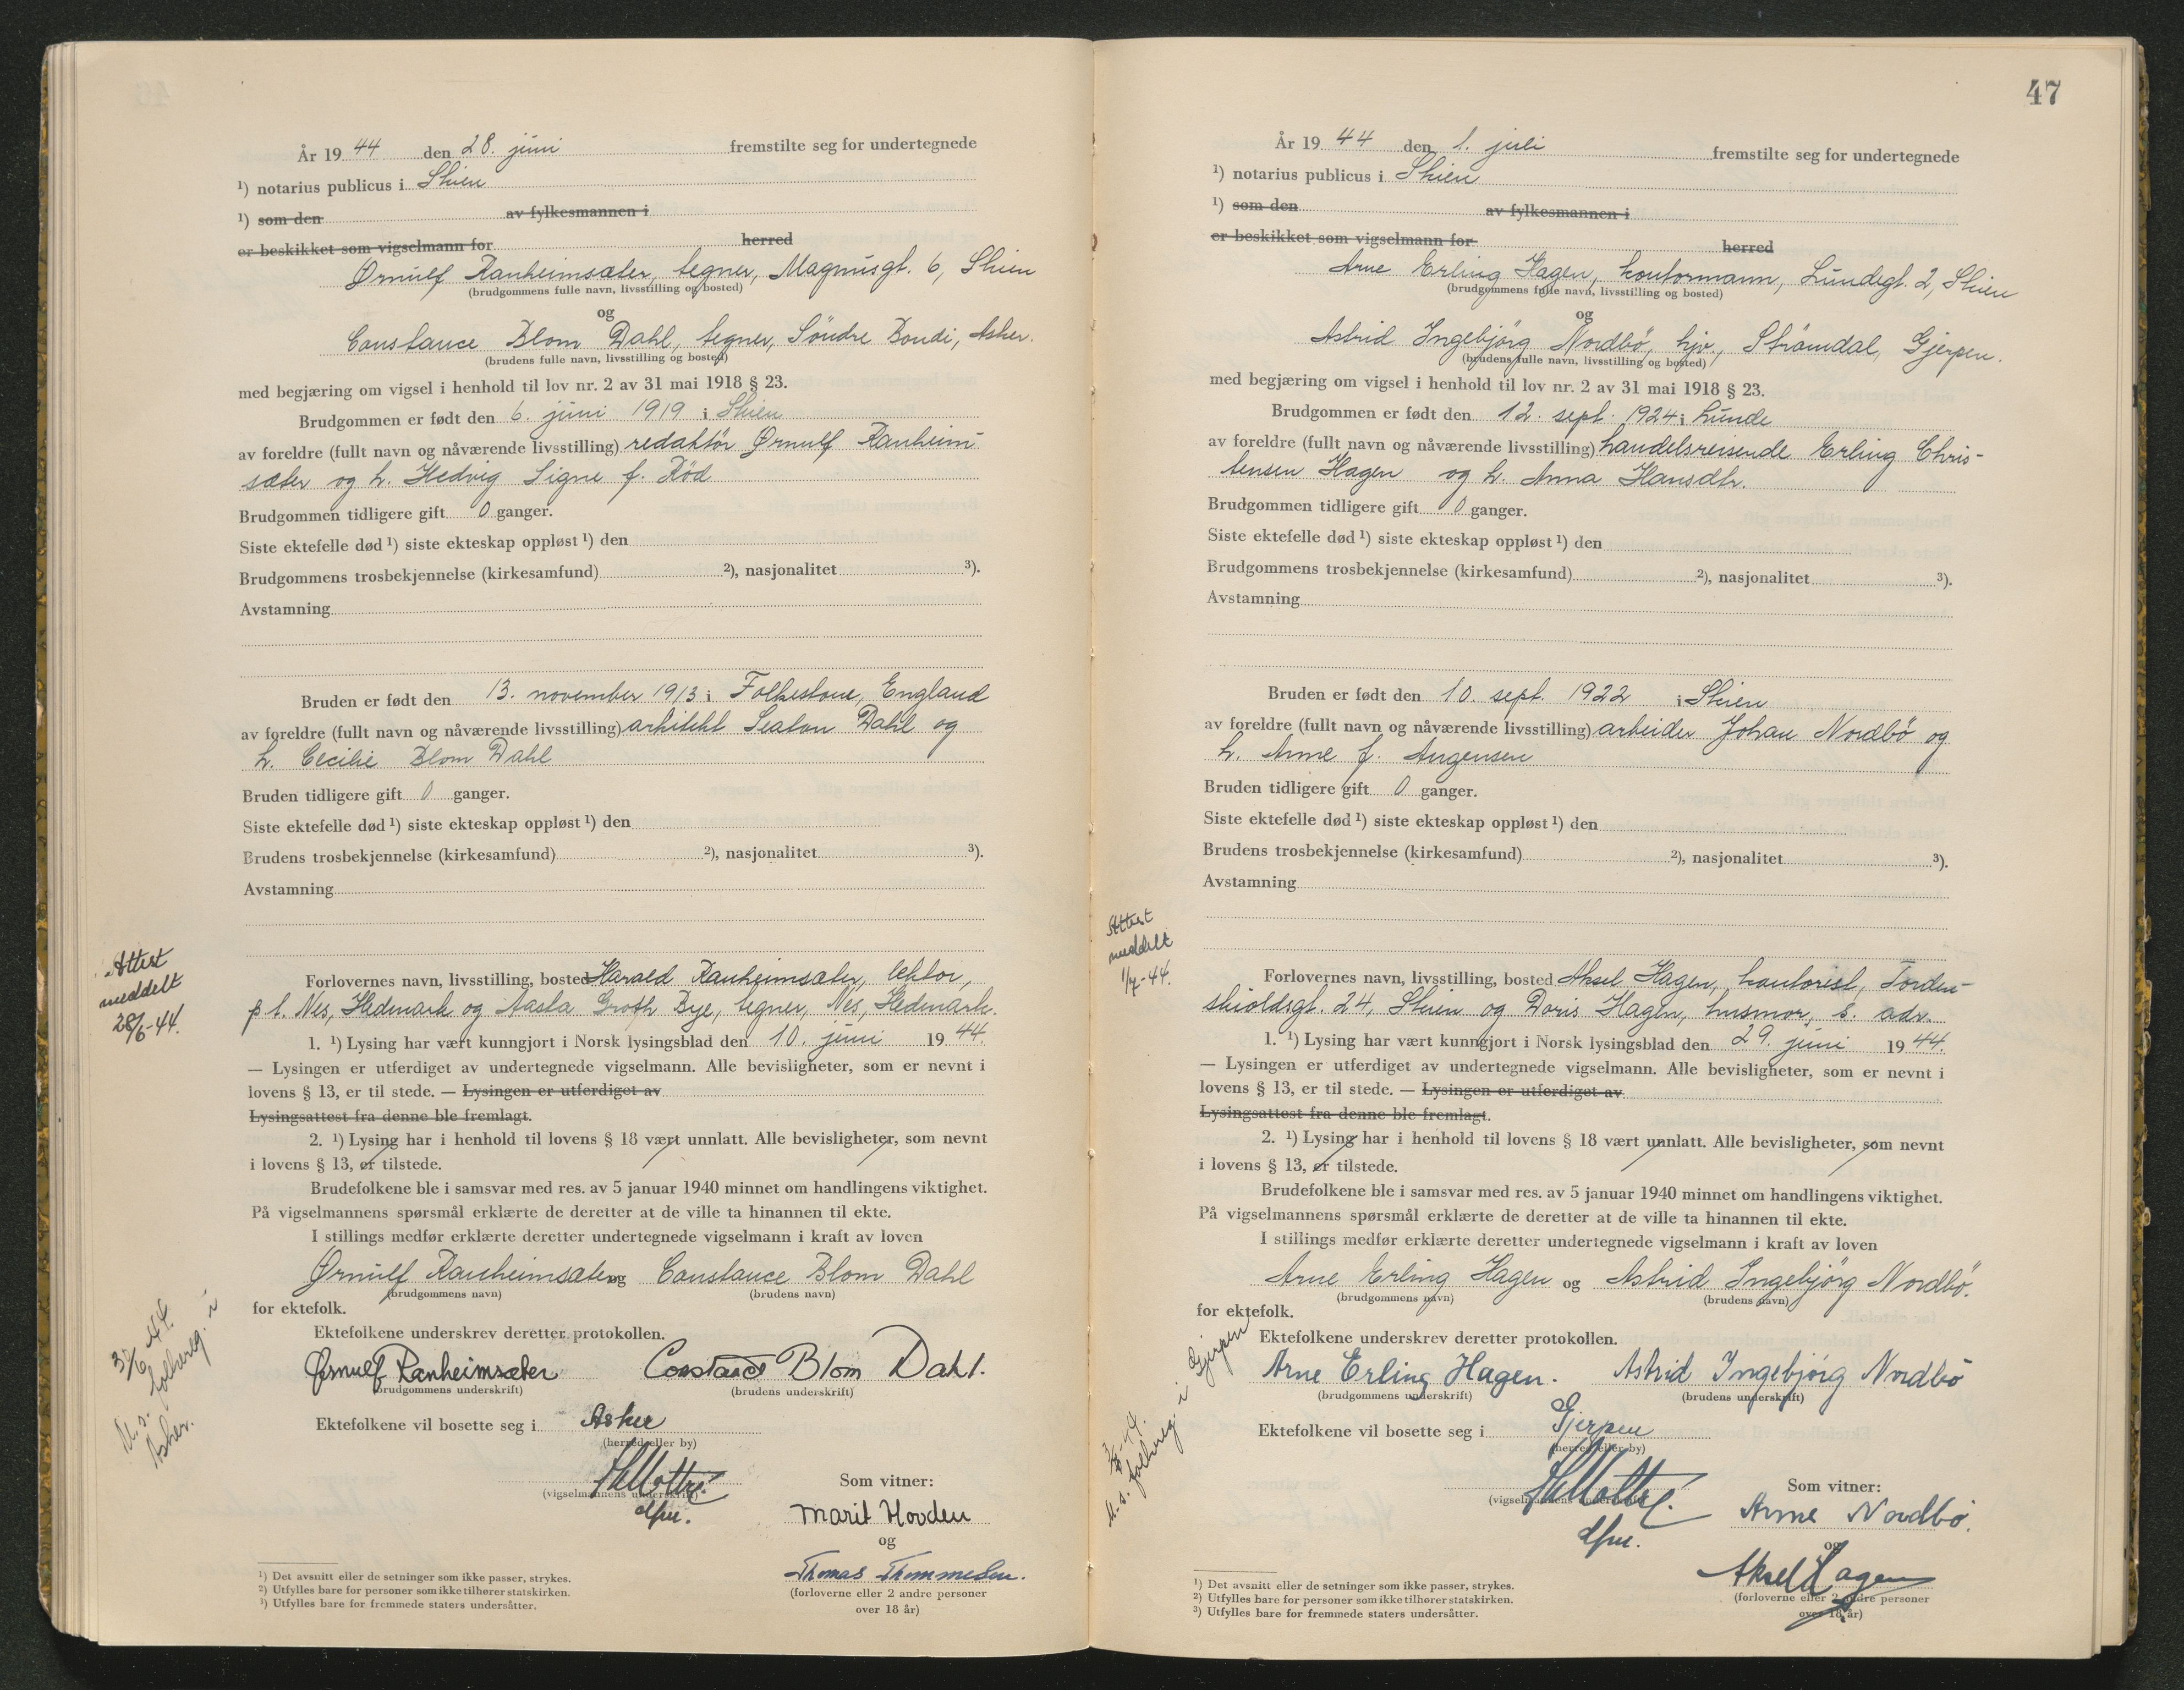 År 19 44 den 28. juni fremstilte seg for undertegnede
¹) notarius publicus i Skien
¹) som den av fylkesmannen i
er beskikket som vigselmann for herred
Ørnulf Ranheimsæter, tegner, Magnusgt. 6, Skien
(brudgommens fulle navn, livsstilling og bosted)
og
Constance Blom Dahl, tegner, Söndre Bondi, Asker.
(brudens fulle navn, livsstilling og bosted)
med begjæring om vigsel i henhold til lov nr. 2 av 31 mai 1918 § 23.
Brudgommen er født den 6. juni 1919 i Skien
av foreldre (fullt navn og nåværende livsstilling) redaktör Ørnulf Ranheim-
sæter og h. Hedvig Signe f. Röd
Brudgommen tidligere gift 0 ganger.
Siste ektefelle død ¹) siste ekteskap oppløst ¹) den
Brudgommens trosbekjennelse (kirkesamfund) ²), nasjonalitet ³).
Avstamning
Bruden er født den 13. november 1913 i Folkestone, England
av foreldre (fullt navn og nåværende livsstilling) arkitekt Seaton Dahl og
h. Cecilie Blom Dahl
Bruden tidligere gift 0 ganger.
Siste ektefelle død ¹) siste ekteskap oppløst ¹) den
Brudens trosbekjennelse (kirkesamfund) ²), nasjonalitet ³).
Avstamning
Attest
meddelt
28/6-44.
Forlovernes navn, livsstilling, bosted Harald Ranheimsæter, lektor,
p t. Nes, Hedmark og Aasta Groth Bye, tegner, Nes, Hedmark.
1. ¹) Lysing har vært kunngjort i Norsk lysingsblad den 10. juni 19 44.
— Lysingen er utferdiget av undertegnede vigselmann. Alle bevisligheter, som er nevnt i
lovens § 13, er til stede. — Lysingen er utferdiget av
Lysingsattest fra denne ble fremlagt.
2. ¹) Lysing har i henhold til lovens § 18 vært unnlatt. Alle bevisligheter, som nevnt
i lovens § 13, er tilstede.
Brudefolkene ble i samsvar med res. av 5 januar 1940 minnet om handlingens viktighet.
På vigselmannens spørsmål erklærte de deretter at de ville ta hinannen til ekte.
I stillings medfør erklærte deretter undertegnede vigselmann i kraft av loven
Ørnulf Ranheimsæter og Constance Blom Dahl
(brudgommens navn) (brudens navn)
for ektefolk.
Ektefolkene underskrev deretter protokollen.
Ørnulf Ranheimsæter Constance Blom Dahl.
(brudgommens underskrift) (brudens underskrift)
M. s. folkereg. i
Asker.
Ektefolkene vil bosette seg i Asker
(herred eller by)
(vigselmannens underskrift)
Som vitner:
Marit Hovden
og
Thomas Thommesen.
(forloverne eller 2 andre personer
over 18 år)
¹) Det avsnitt eller de setninger som ikke passer, strykes.
²) Utfylles bare for personer som ikke tilhører statskirken.
³) Utfylles bare for fremmede staters undersåtter.
47
År 19 44 den 1. juli fremstilte seg for undertegnede
¹) notarius publicus i Skien
¹) som den av fylkesmannen i
er beskikket som vigselmann for herred
Arne Erling Hagen, kontormann, Lundegt. 2, Skien
(brudgommens fulle navn, livsstilling og bosted)
og
Astrid Ingebjörg Nordbö, hjv., Strömdal, Gjerpen.
(brudens fulle navn, livsstilling og bosted)
med begjæring om vigsel i henhold til lov nr. 2 av 31 mai 1918 § 23.
Brudgommen er født den 12. sept. 1924 i Lunde
av foreldre (fullt navn og nåværende livsstilling) handelsreisende Erling Chris-
tensen Hagen og h. Anna Hansdtr.
Brudgommen tidligere gift 0 ganger.
Siste ektefelle død ¹) siste ekteskap oppløst ¹) den
Brudgommens trosbekjennelse (kirkesamfund) ²), nasjonalitet ³).
Avstamning
Bruden er født den 10. sept. 1922 i Skien
av foreldre (fullt navn og nåværende livsstilling) arbeider Johan Nordbö og
h. Anne f. Angensen
Bruden tidligere gift 0 ganger.
Siste ektefelle død ¹) siste ekteskap oppløst ¹) den
Brudens trosbekjennelse (kirkesamfund) ²), nasjonalitet ³).
Avstamning
Attest
meddelt
1/7-44.
Forlovernes navn, livsstilling, bosted Aksel Hagen, kontorist, Torden-
skioldsgt. 24, Skien og Doris Hagen, husmor, s. adr.
1. ¹) Lysing har vært kunngjort i Norsk lysingsblad den 29. juni 19 44.
— Lysingen er utferdiget av undertegnede vigselmann. Alle bevisligheter, som er nevnt i
lovens § 13, er til stede. — Lysingen er utferdiget av
Lysingsattest fra denne ble fremlagt.
2. ¹) Lysing har i henhold til lovens § 18 vært unnlatt. Alle bevisligheter, som nevnt
i lovens § 13, er tilstede.
Brudefolkene ble i samsvar med res. av 5 januar 1940 minnet om handlingens viktighet.
På vigselmannens spørsmål erklærte de deretter at de ville ta hinannen til ekte.
I stillings medfør erklærte deretter undertegnede vigselmann i kraft av loven
Arne Erling Hagen og Astrid Ingebjörg Nordbö.
(brudgommens navn) (brudens navn)
for ektefolk.
Ektefolkene underskrev deretter protokollen.
Arne Erling Hagen. Astrid Ingebjörg Nordbö
(brudgommens underskrift) (brudens underskrift)
M. s. folkereg. i Gjerpen
Ektefolkene vil bosette seg i Gjerpen
(herred eller by)
(vigselmannens underskrift)
Som vitner:
Arne Nordbö.
og
Aksel Hagen
(forloverne eller 2 andre personer
over 18 år)
¹) Det avsnitt eller de setninger som ikke passer, strykes.
²) Utfylles bare for personer som ikke tilhører statskirken.
³) Utfylles bare for fremmede staters undersåtter.